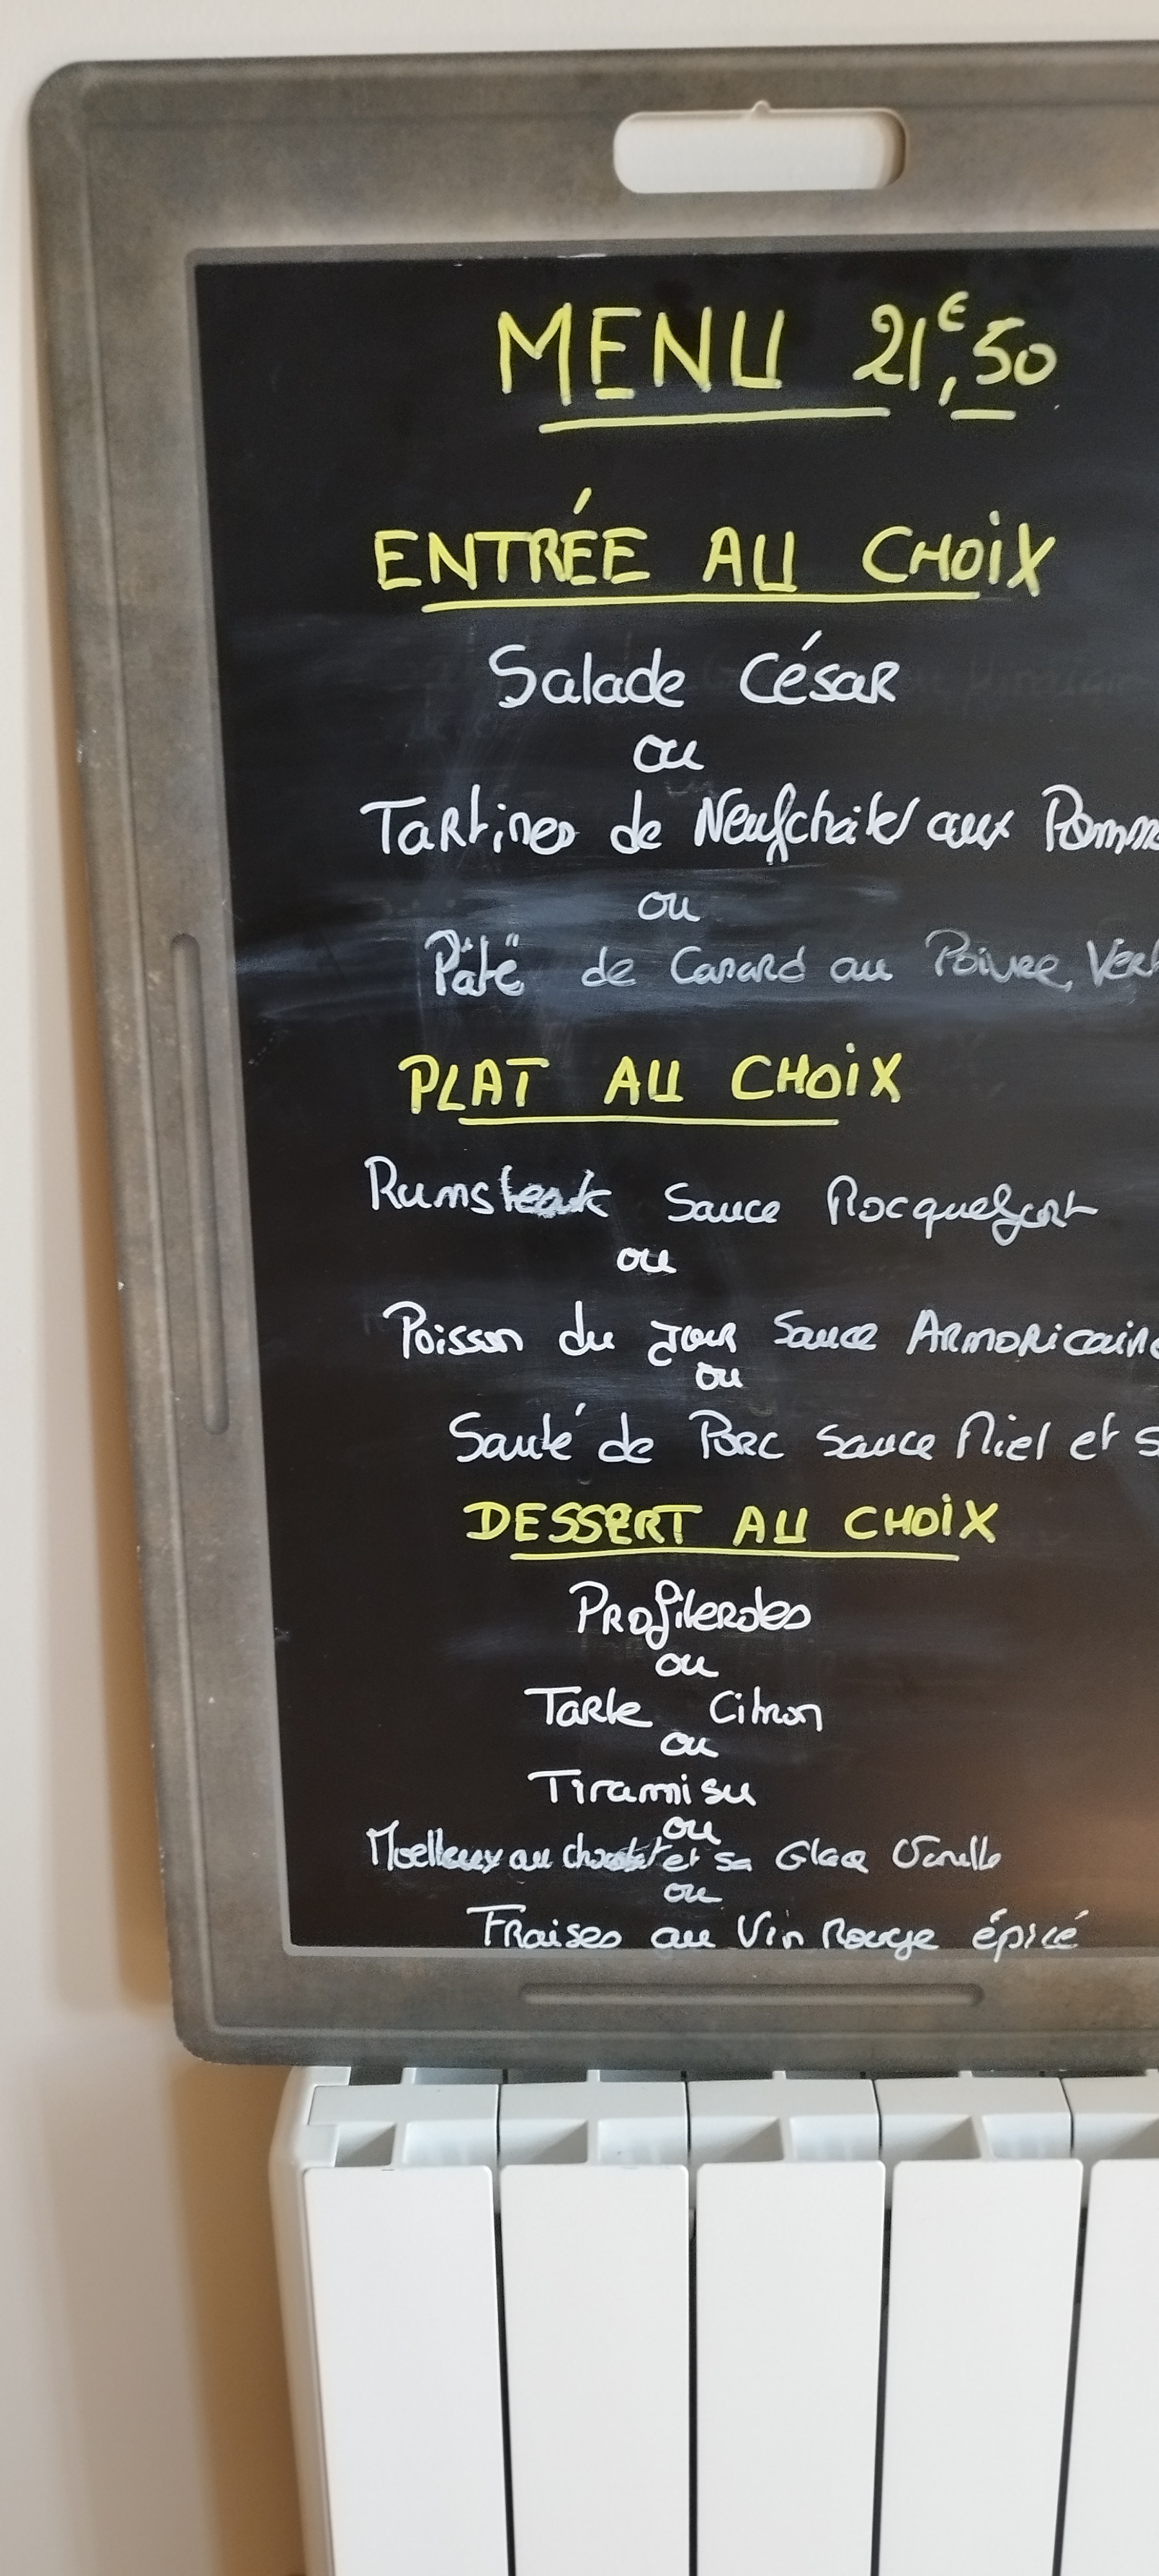 MENU 21€,50
ENTRÉE AU CHOIX
Salade César
ou
Tartines de Neufchâtel aux Pomm
ou
Pâté de Canard au Poivre Vert
PLAT AU CHOIX
Rumsteak Sauce Rocquefort
ou
Poisson du jour Sauce Armoricaine
ou
Sauté de Porc Sauce Miel et S
DESSERT AU CHOIX
Profiteroles
ou
Tarte Citron
ou
Tiramisu
ou
Moelleux au chocolat et sa Glace Vanille
ou
Fraises au Vin Rouge épicé